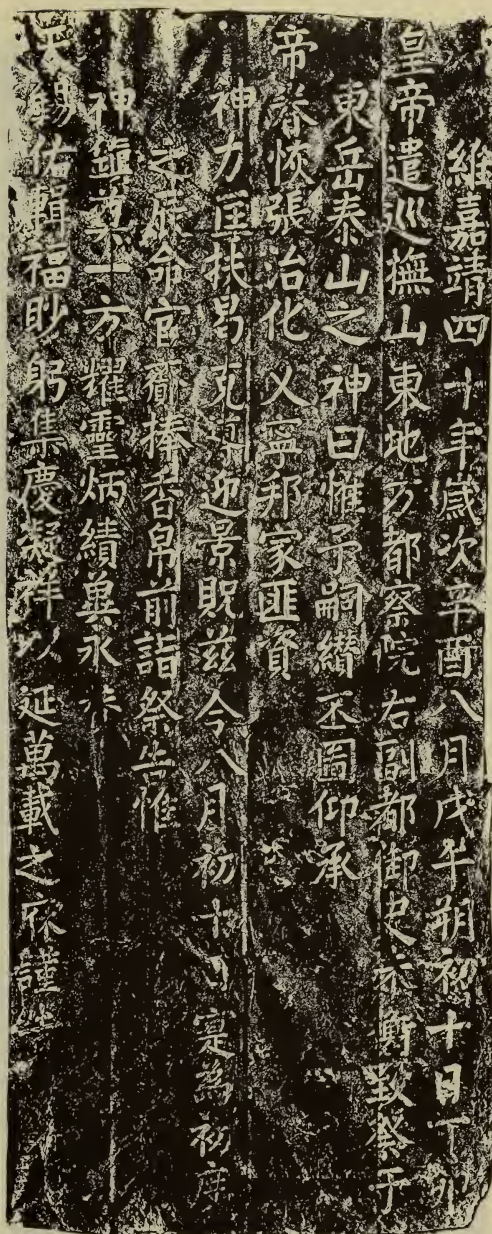 維嘉靖四十年歲次辛酉八月戊午朔初十日丁卯
皇帝遣巡撫山東地方都察院右副都御史朱衡致祭于
東岳泰山之神曰惟予嗣纘丕圖仰承
帝眷恢張治化乂寧邦家匪資
神力匡扶曷克迎景貺茲今八月初十日寔為初度
之辰命官齎捧香帛前詣祭告惟
神鎮尊一方耀靈炳績冀永
天錫佑輯福眇躬集慶凝祥以延萬載之庥謹告